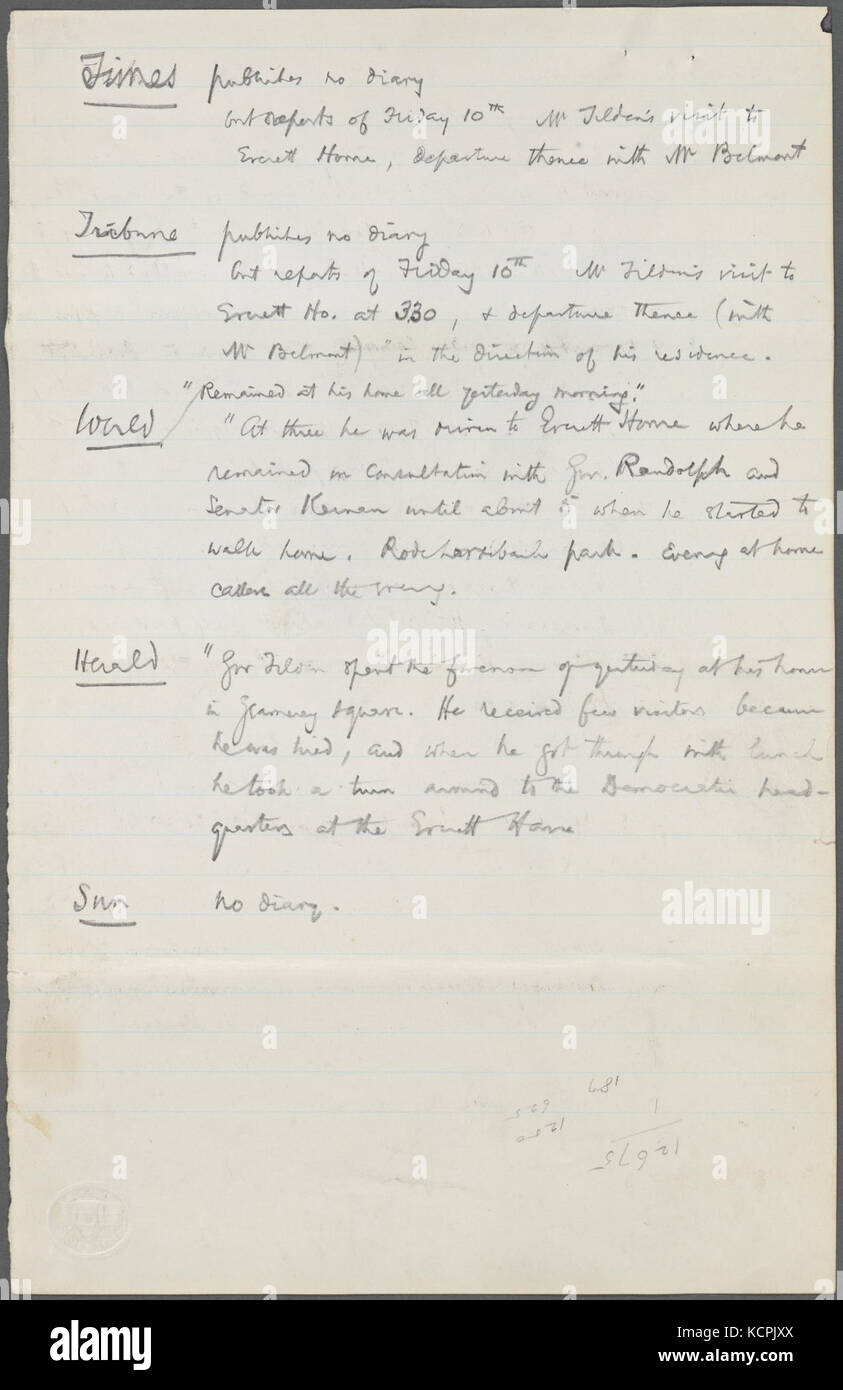 Times publishes no diary
but reports of Friday 10th Mr Tilden's visit to
Everett House, departure thence with Mr Belmont
Tribune publishes no diary
but reports of Friday 10th Mr Tilden's visit to
Everett Ho. at 330, & departure thence (with
Mr Belmont) "in the direction of his residence.
"Remained at his home all yesterday morning."
World "At three he was driven to Everett House where he
remained in consultation with Gov. Randolph and
Senator Kernan until about 5 when he started to
walk home. park. Evening at home
callers all the evening.
Herald "Gov Tilden spent the forenoon of yesterday at his house
in Gramercy square. He received few visitors because
he was tired, and when he got through with lunch
he took a turn around to the Democratic head-
quarters at the Everett House
Sun no diary.
12675
1
1250
625
alamy
Image ID: KCPJXX
www.alamy.com